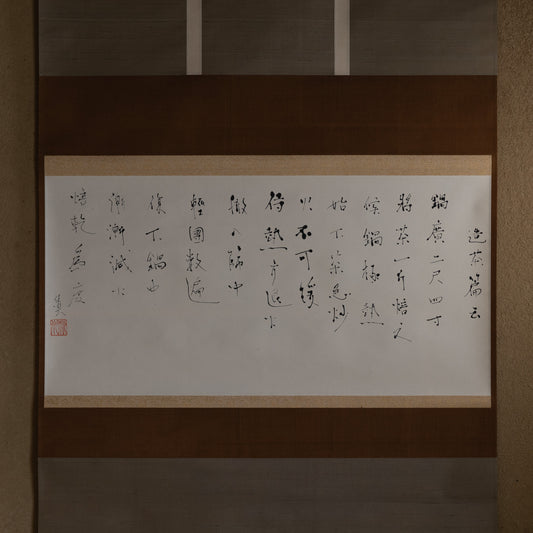 造茶篇云
鍋廣二尺四寸
將茶一斤焙之
候鍋極熱
始下茶急炒
火不可緩
待熱方退火
徹入篩中
輕團數遍
復下鍋中
漸漸減火
焙乾爲度